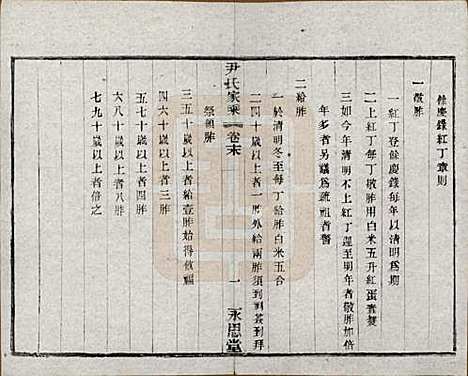 餘慶錄紅丁章則
一散胙
一紅丁登餘慶錄每年以清明爲期
二上紅丁每丁散胙用白米五升紅蛋壹隻
三如今年清明不上紅丁遲至明年者散胙加倍
年多者另議爲疏祖者警
二給胙
一於清明冬至每丁給胙白米五合
二四十歲以上者一胙外給兩胙須到祠簽到拜
尹氏家乘 卷末
一
永思堂
祭領胙
三五十歲以上者給壹胙始得散福
四六十歲以上者三胙
五七十歲以上者四胙
六八十歲以上者八胙
七九十歲以上者倍之